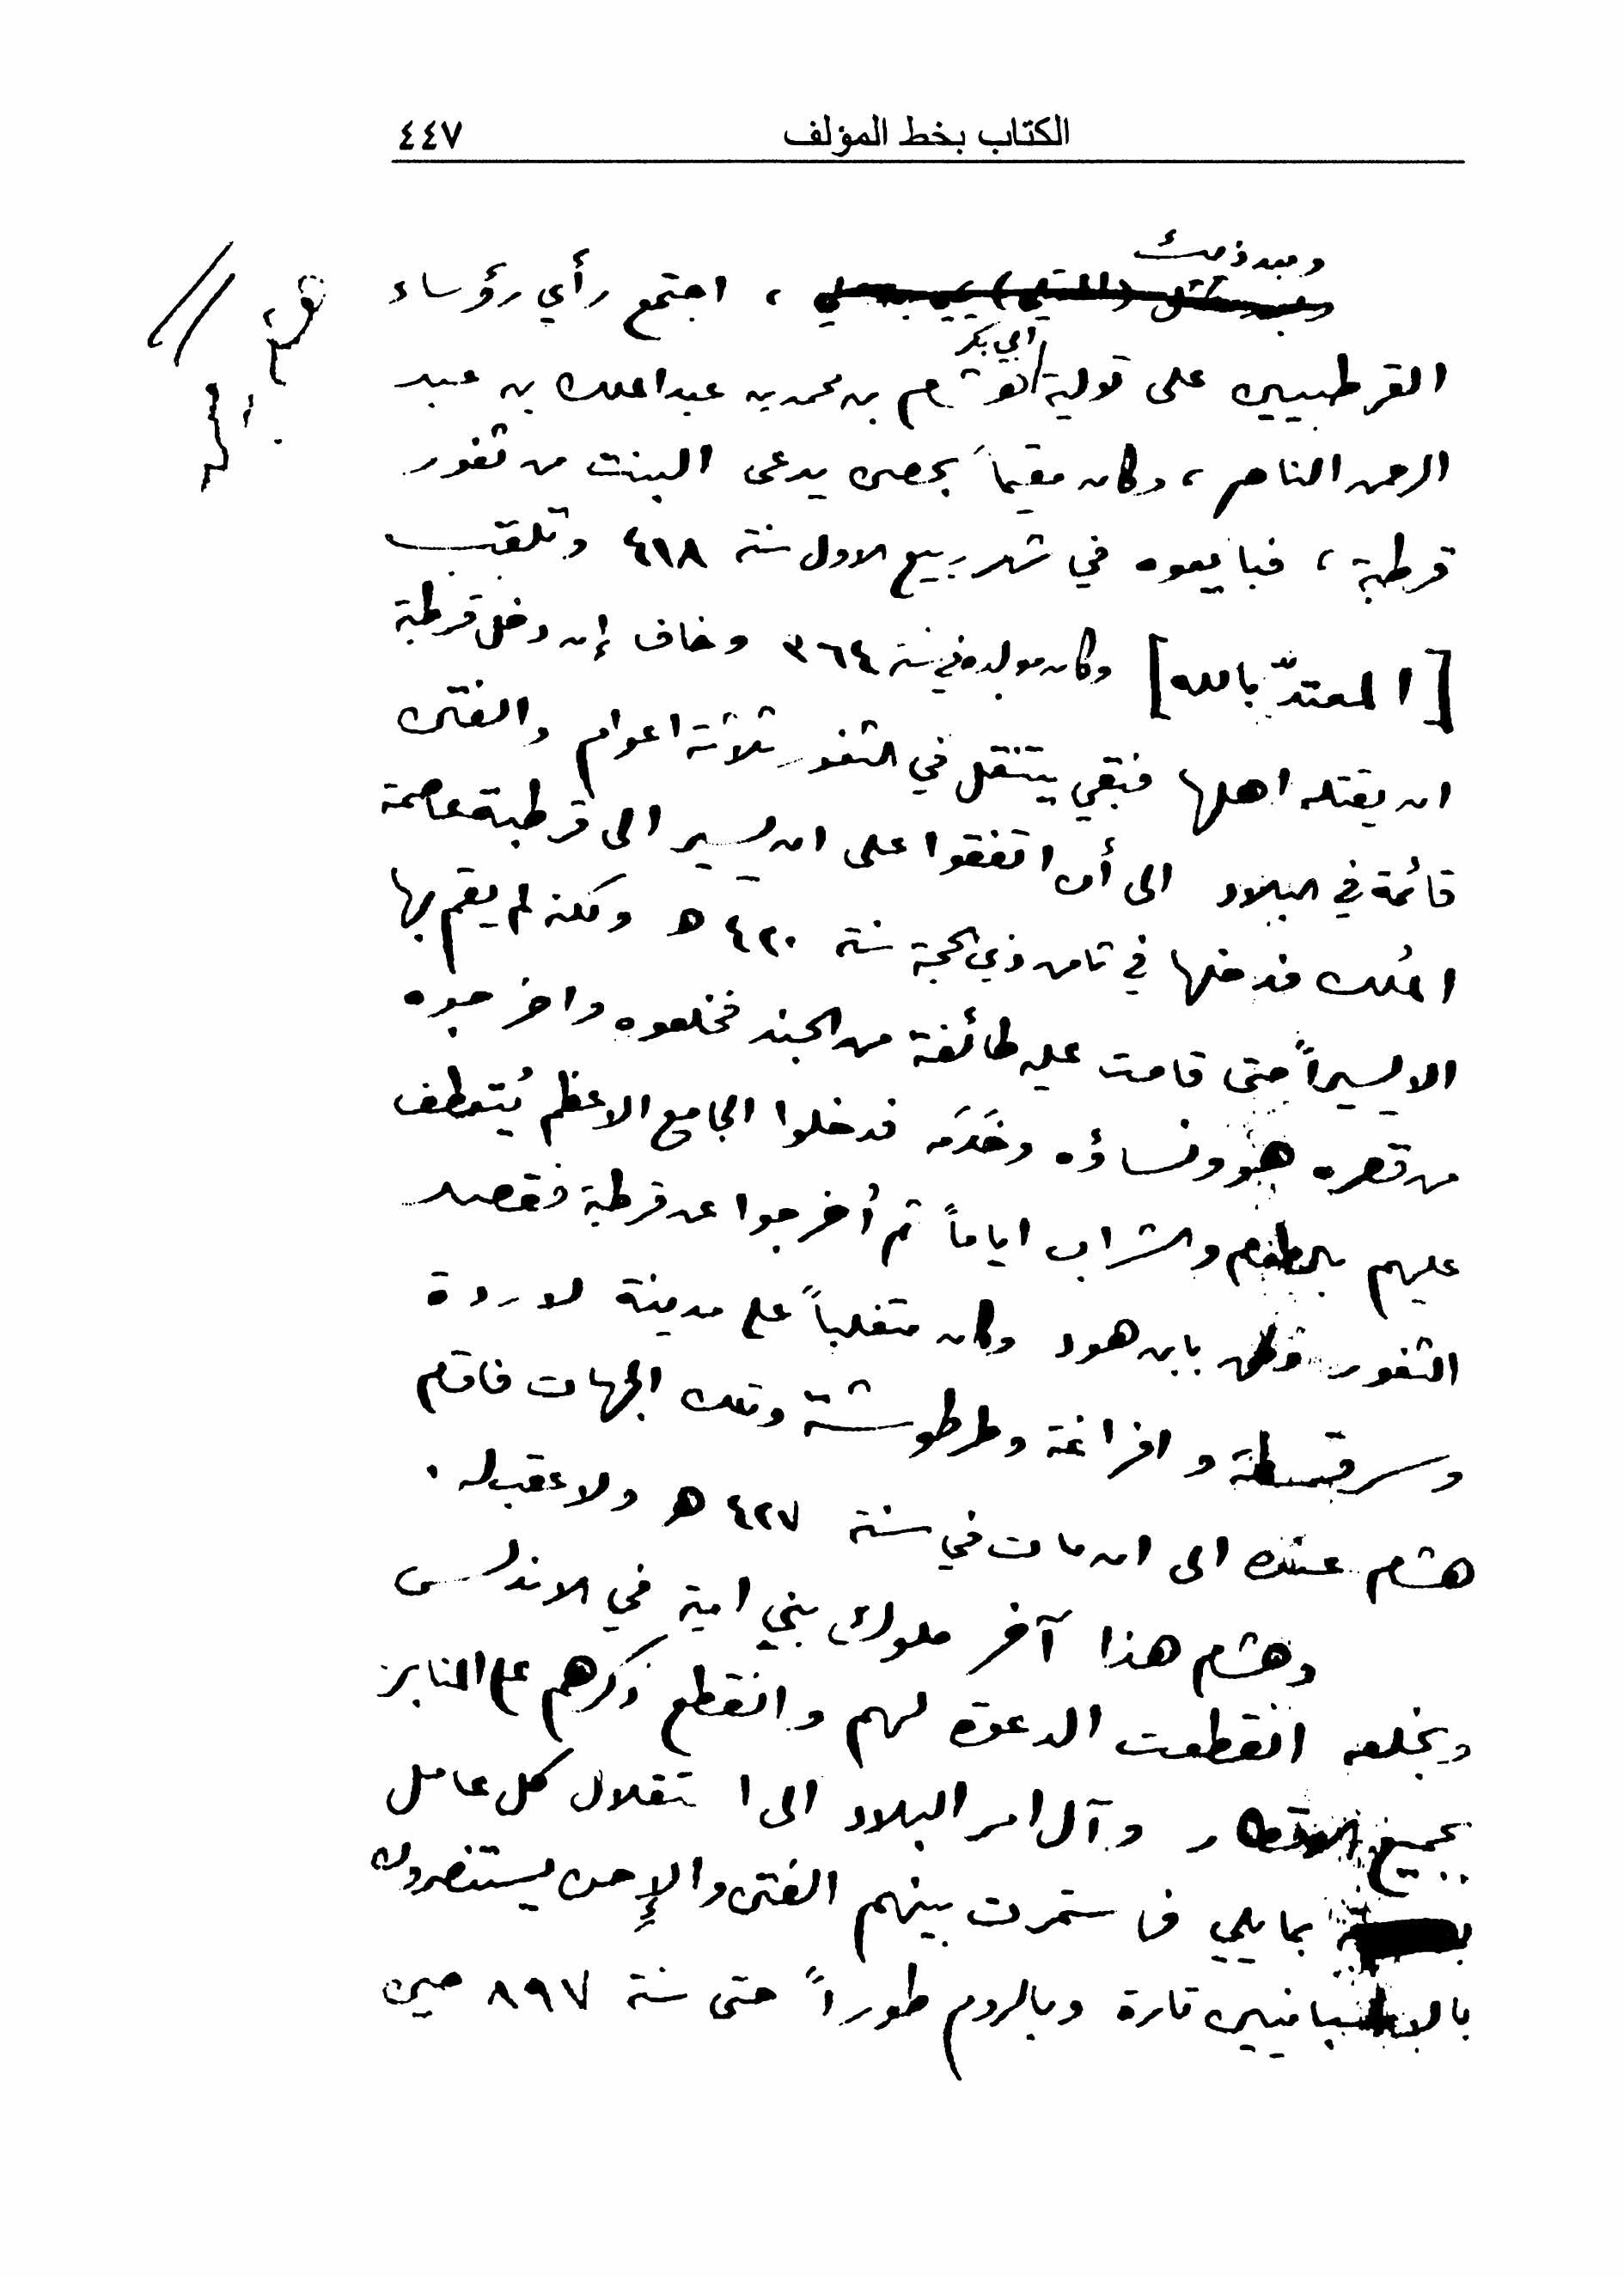 الكتاب بخط المؤلف ٤٤٧
وبعد ذلك
، اجتمع رأي رؤساء
ابي بكر
القرطبيين على تولية هشام بن محمد بن عبد الملك بن عبد
الرحمن الناصر، وكان مقيماً بحصن يدعى البنت من ثغور
قرطبة، فبايعوه في شهر ربيع الاول سنة ٤١٨ وتلقب
[المعتدّ بالله] وكان مولده في سنة ٣٦٤ وخاف إن دخل قرطبة
ان يقتله اهلها فبقي يتنقل في الثغور ثلاثة اعوام والفتن
قائمة في البلاد الى أن اتفقوا على ان يسير الى قرطبة عاصمة
المُلك فدخلها في ثامن ذي الحجة سنة ٤٢٠ ه ولكنه لم يقم بها
الا يسيراً حتى قامت عليه طائفة من الجند فخلعوه واخرجوه
من قصره هو ونساؤه وخَدَمه فدخلوا الجامع الاعظم يُتعطف
عليهم بالطعام والشراب اياماً ثم أُخرجوا عن قرطبة فقصد
الثغور ولحق بابن هود وكان متغلباً على مدينة لاردة
وسرقسطة وافراغة وطرطوشة وتلك الجهات فاقام
هشام عنده الى ان مات في سنة ٤٢٧ ه ولا عقب له.
وهشام هذا آخر ملوك بني امية في الاندلس
وبخلعه انقطعت الدعوة لهم وانقطع ذكرهم على المنابر
بجميع الاقطار وآل امر البلاد الى استقلال كل عامل
بما يلي فاستمرت بينهم الفتن والإحن يستنصرون
بالاسبانيين تارة وبالروم طوراً حتى سنة ٨٩٧ حين